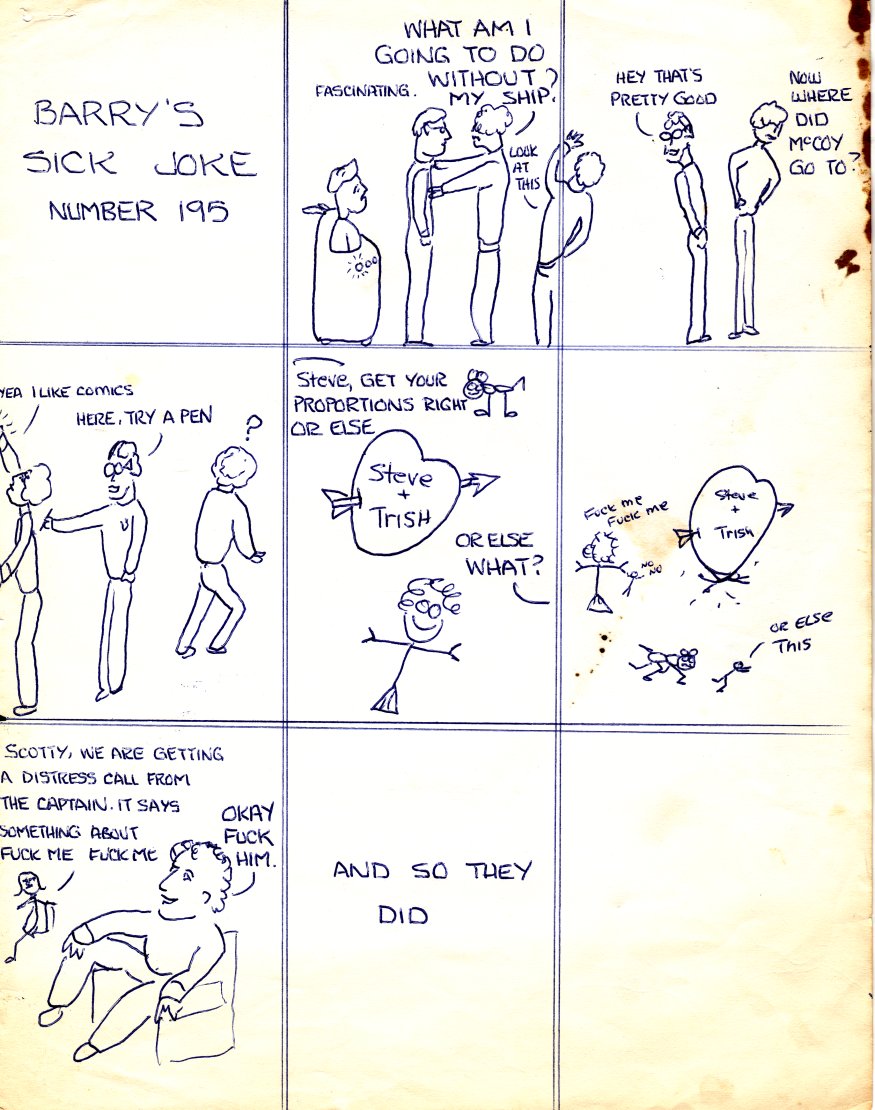 BARRY'S
SICK JOKE
NUMBER 195
FASCINATING.
WHAT AM I
GOING TO DO
WITHOUT
MY SHIP?
LOOK
AT
THIS
HEY THAT'S
PRETTY GOOD
NOW
WHERE
DID
McCOY
GO TO?
YEA I LIKE COMICS
HERE, TRY A PEN
?
Steve, GET YOUR
PROPORTIONS RIGHT
OR ELSE
Steve
+
TRISH
OR ELSE
WHAT?
Fuck me
Fuck me
NO
NO
Steve
+
Trish
OR ELSE
THIS
SCOTTY, WE ARE GETTING
A DISTRESS CALL FROM
THE CAPTAIN. IT SAYS
SOMETHING ABOUT
FUCK ME FUCK ME
OKAY
FUCK
HIM.
AND SO THEY
DID